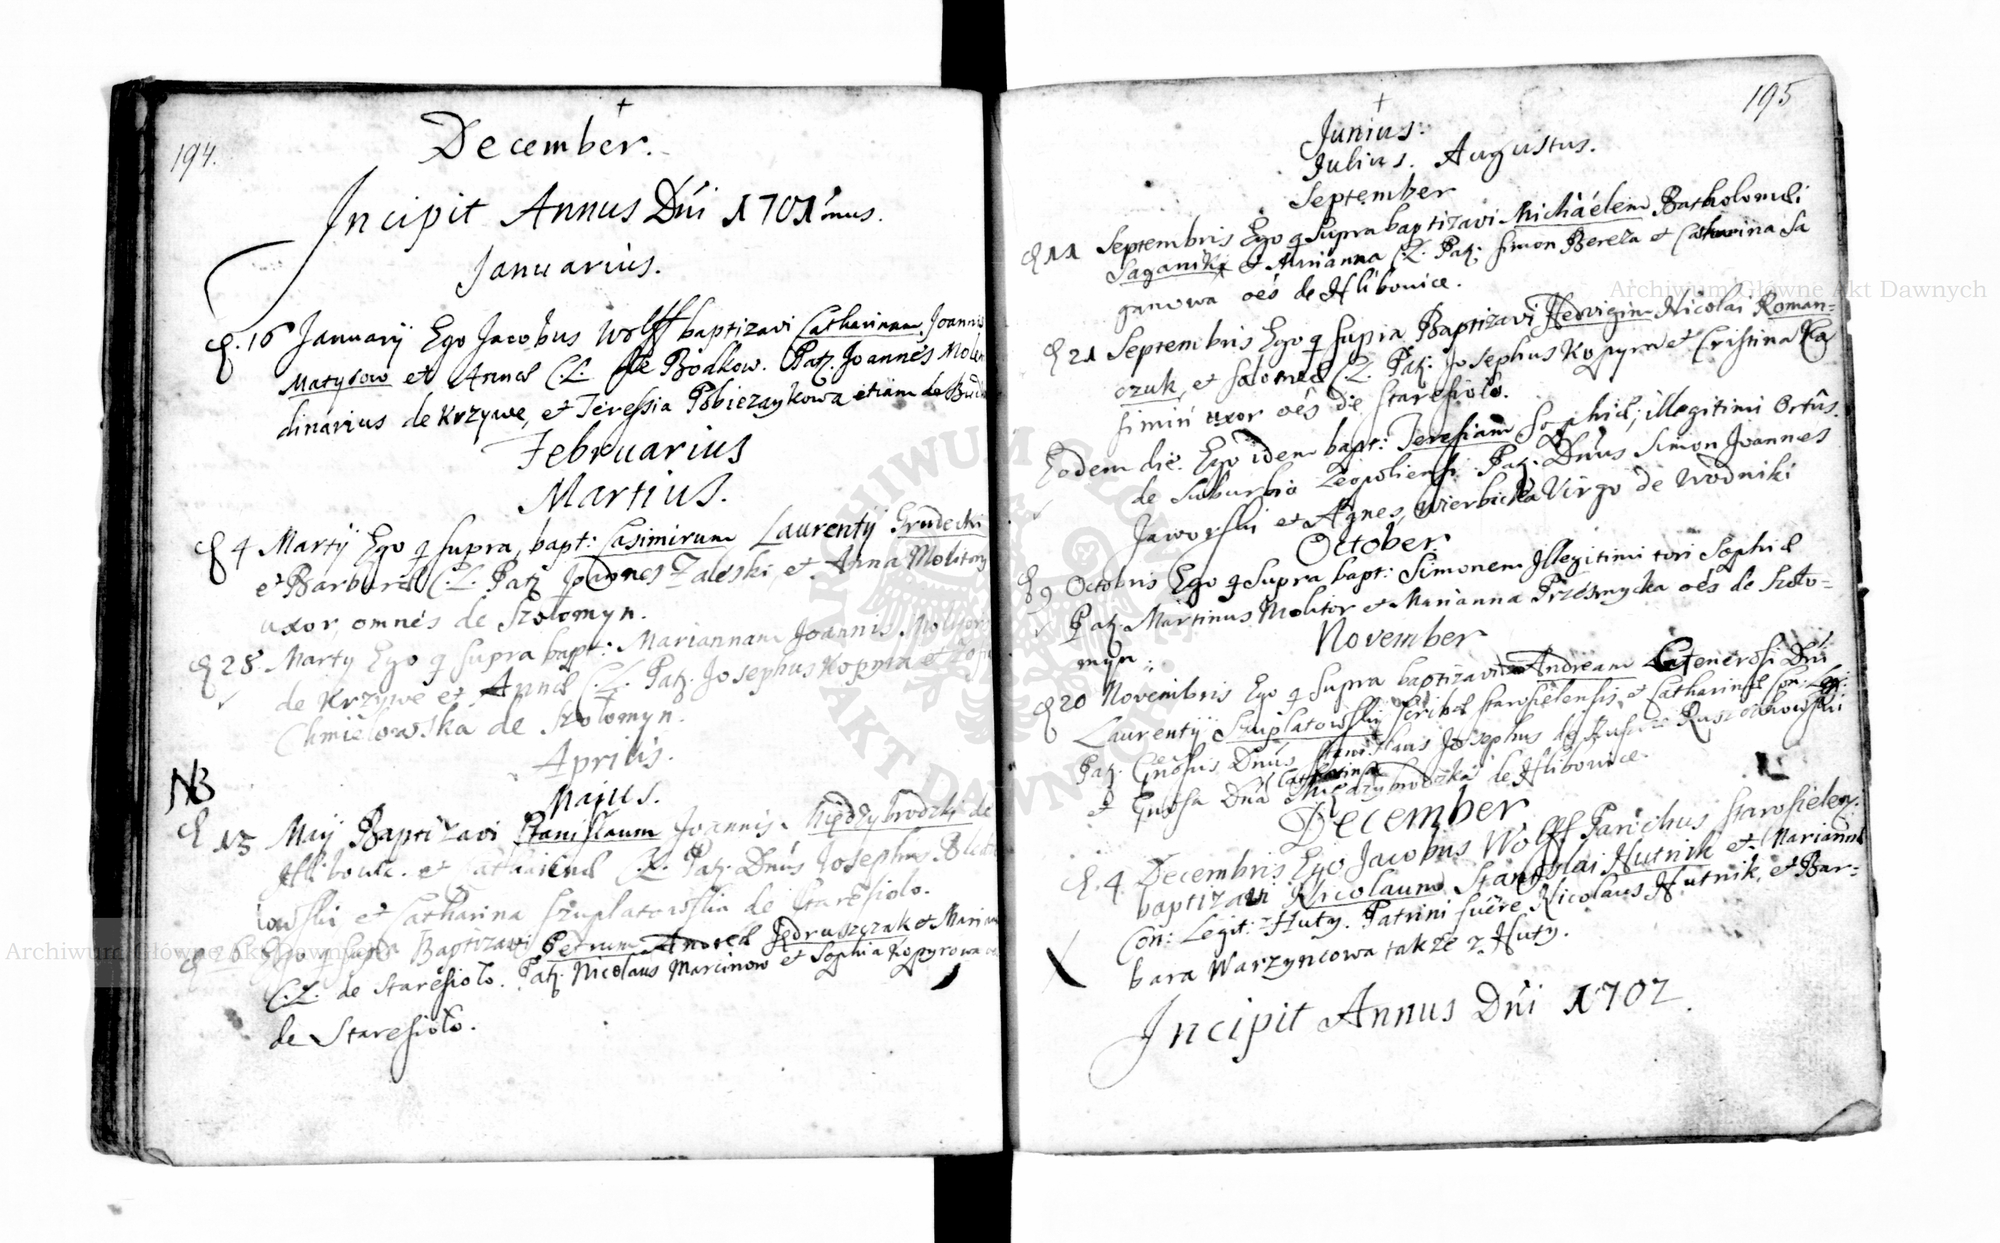 194.
December.
Incipit Annus Dni 1701mus.
Januarius.
16 January Ego Jacobus Wolff baptizavi Catharinam Joannis
Matysow et Annæ C.L. de Bodkow. Patz. Joannes Molen
dinarius de Krzywe, et Teressia Pobiezaykowa etiam de
Februarius
Martius.
4 Martÿ Ego q supra, bapt: Casimirum Laurentÿ Grudecki
et Barbaræ C.L. Patz Joannes Zaleski, et Anna Molitoris
uxor, omnes de Szolomyn.
28. Marty Ego q supra bapt: Mariannam Joannis Molitor
de Krzywe et Annæ C.L. Patz. Josephus Kopyra et
Chmielowska de Szolomyn.
Aprilis.
Majus.
NB
15 Maÿ Baptizavi Stanislaum Joannis Międzybrodzki de
Hlibowic. et Catharinæ C.L. Patz. Dnus Josephus
et Catharina Szuplatowska de Staresioło.
26 Ego q supra Baptizavi Petrum Andreæ Jędruszczak et Marian
C.L. de Staresioło. Patz. Nicolaus Marcinow et Sophia Kopyrowa
de Staresioło.
195
Junius.
Julius. Augustus.
September
11 Septembris Ego q supra baptizavi Michaelem Bartholomæi
Saganik et Marianna C.L. Patz. Simon Bereza et Catharina Sa
ganowa oes de Hlibowice.
21 Septembris Ego q supra Baptizavi Hedvigim Nicolai Roman=
czuk, et Salomeæ C.L. Patz. Josephus Kopyra et Cristina Ka
simin uxor oes de Staresioło.
Eodem die. Ego idem bapt: Teresiam Sophiæ, illegitimi Ortus.
de Suburbio Leopoliensi. Patz. Dnus Simon Joannes
Jaworski et Agnes Wierbicka Virgo de Wodniki
October
9 Octobris Ego q supra bapt: Simonem Illegitimi tori Sophiæ
Patz. Martinus Molitor et Marianna Przésmycka oes de Szoło=
myn.
November
20 Novembris Ego q supra baptizavi Andream Generosi Dni
Laurentÿ Szuplatowski scribæ starosielensis, et Catharinæ Con: Leg:
Patz. Gnosus Dnus Stanislaus Josephus de Rusi Ruszczkowski
et Gnosa Dna Catharina Międzybrodzka de Hlibowice.
December
4 Decembris Ego Jacobus Wolff Parochus Starosielen.
baptizavi Nicolaum Stanislai Hutnik et Mariannæ
Con: Legit: z Huty. Patrini fuere Nicolaus Hutnik, et Bar=
bara Warzyncowa także z Huty.
Incipit Annus Dni 1702.
Archiwum Główne Akt Dawnych
Archiwum Główne Akt Dawnych
ARCHIWUM GŁÓWNE AKT DAWNYCH